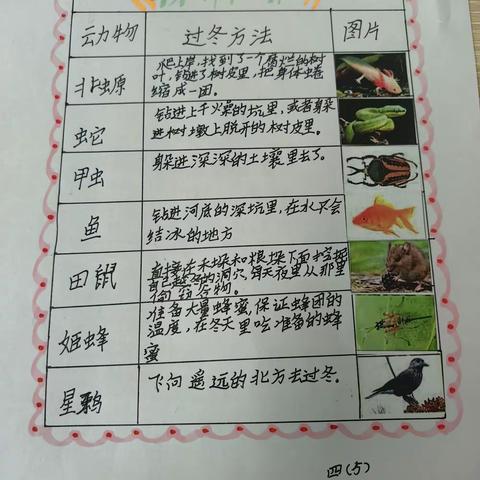 动物 过冬方法 图片
北螈 爬上岸,找到了一个腐烂的树
叶,钻进了树皮里,把身体蜷
缩成一团。
蛇 钻进上千火冀的坑里,或者躲
进树墩上脱开的树皮里。
甲虫 躲进深深的土壤里去了。
鱼 钻进河底的深坑里,在水不会
结冰的地方
田鼠 直接在禾垛和粮垛下面挖掘
自己越冬的洞穴,每天夜里从那里
偷谷物。
姬蜂 准备大量蜂蜜,保证蜂团的
温度,在冬天里吃准备的蜂
蜜
星鸦 飞向遥远的北方去过冬。
四(5)